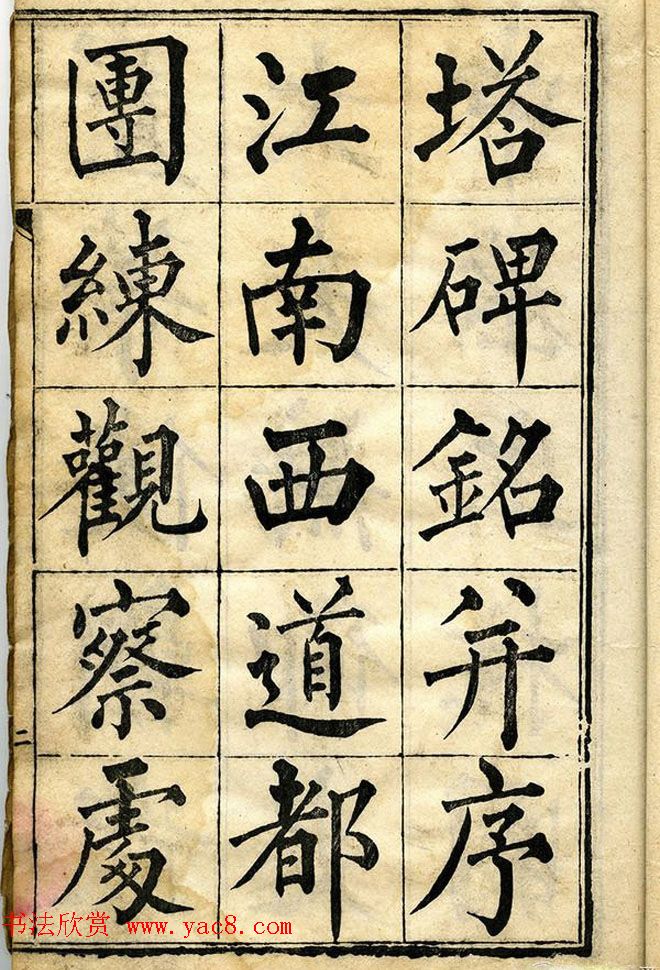 塔碑銘并序
江南西道都
團練觀察處
二
书法欣赏 www.yac8.com